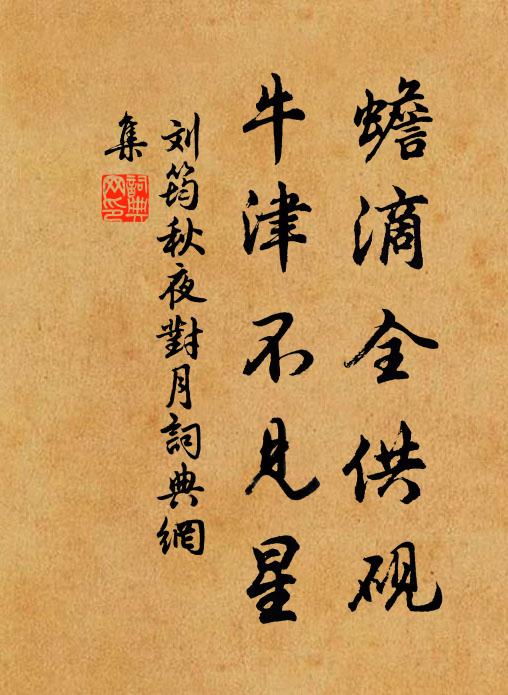 蟾滴全供砚
牛津不見星
刘筠秋夜對月詞典網
集
詞典网印